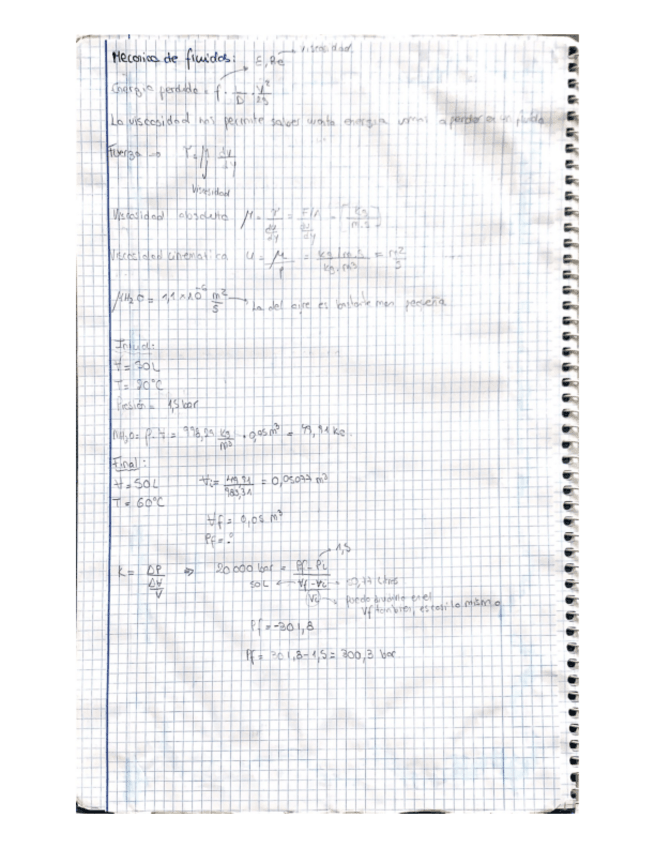 Mecanica de fluidos: ε, Re → viscosidad
Energia perdida = f · L/D · v²/2g
La viscosidad nos permite saber cuanta energia vamos a perder en un fluido
Fuerza → τ = μ Δv/Δy
Viscosidad
Viscosidad absoluta μ = τ/(dv/dy) = F/A/(dv/dy) = [kg/m.s]
Viscosidad cinematica υ = μ/ρ = kg/m.s/kg.m3 = m2/s
μH2O = 1,1 x 10⁻⁶ m²/s → La del aire es bastante mas pequeña
Inicial:
V = 50L
T = 20°C
Presión = 1,5 bar
mH2O = ρ · V = 998,29 kg/m³ · 0,05 m³ = 49,91 KG.
Final:
V = 50L Vi = 49,91/983,31 = 0,05077 m³
T = 60°C
Vf = 0,05 m³
Pf = ?
1,5
K = ΔP/(ΔV/V) ⇒ 20 000 bar = (Pf - Pi)/((Vf - Vi)/Vi)
50L 50,77 Litros
Vf tambien, es casi lo mismo
Pf = -301,8
Pf = 301,8 - 1,5 = 300,3 bar